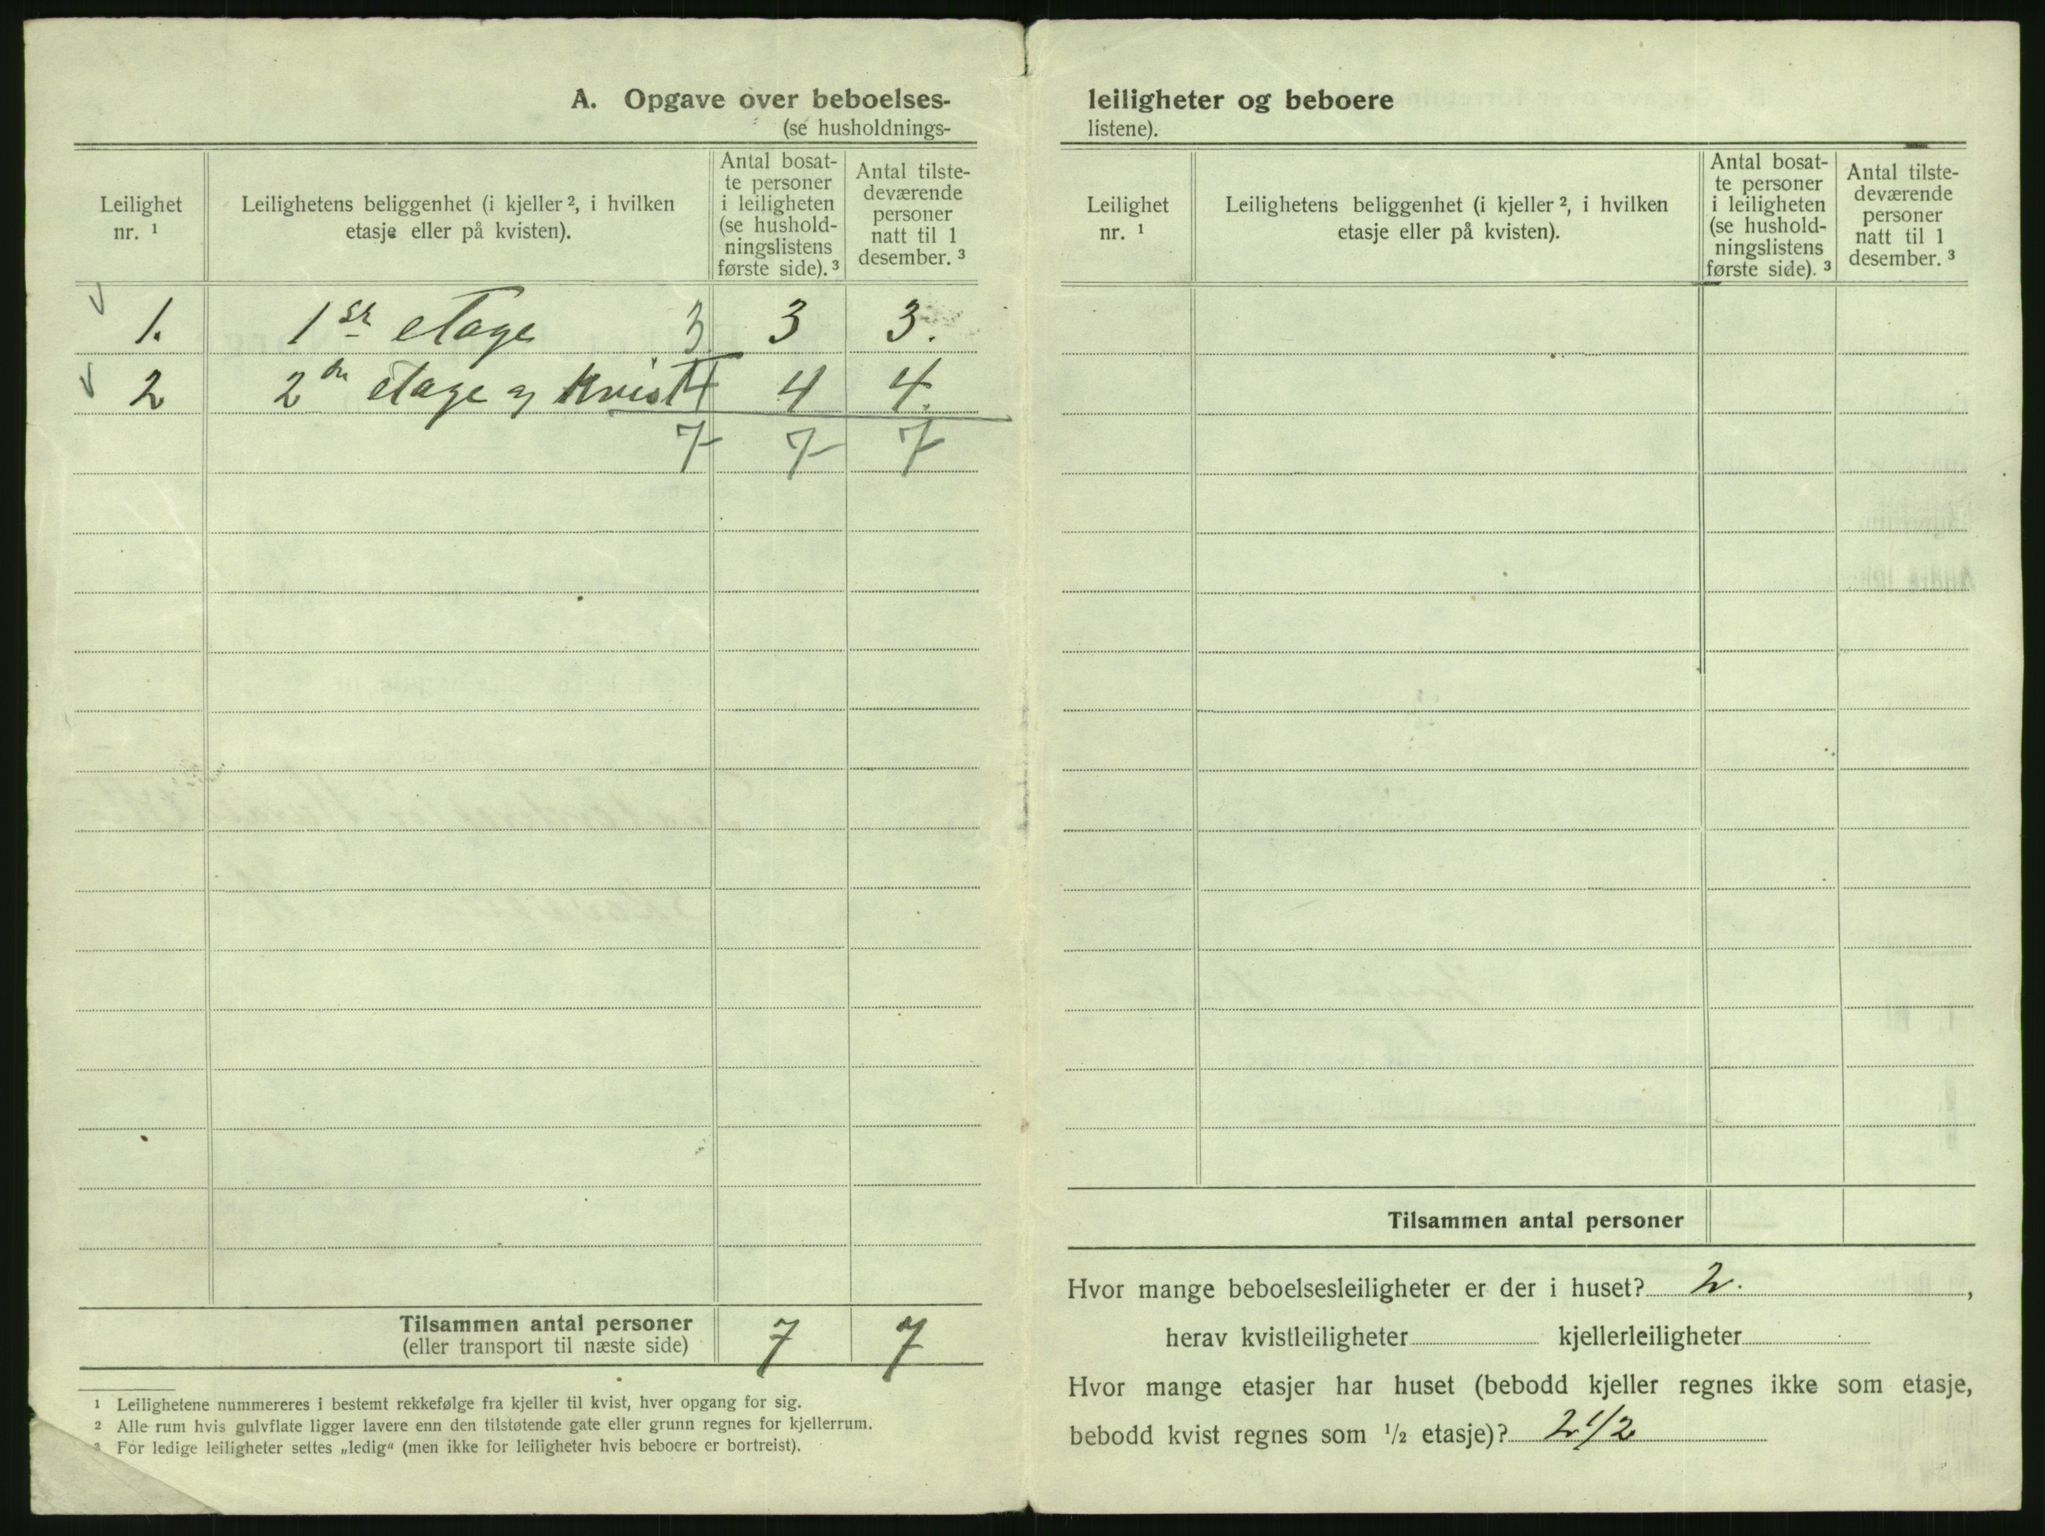 A. Opgave over beboelses-
(se husholdnings-
Leilighet nr. ¹
Leilighetens beliggenhet (i kjeller ², i hvilken
etasje eller på kvisten).
Antal bosat-
te personer
i leiligheten
(se hushold-
ningslistens
første side). ³
Antal tilste-
deværende
personer
natt til 1
desember. ³
1. 1ste etage 3 3 3.
2 2den etage og kvist 4 4 4.
7 7 7
Tilsammen antal personer 7 7
(eller transport til næste side)
¹ Leilighetene nummereres i bestemt rekkefølge fra kjeller til kvist, hver opgang for sig.
² Alle rum hvis gulvflate ligger lavere enn den tilstøtende gate eller grunn regnes for kjellerrum.
³ For ledige leiligheter settes „ledig“ (men ikke for leiligheter hvis beboere er bortreist).
leiligheter og beboere
listene).
Leilighet
nr. ¹
Leilighetens beliggenhet (i kjeller ², i hvilken
etasje eller på kvisten).
Antal bosat-
te personer
i leiligheten
(se hushold-
ningslistens
første side). ³
Antal tilste-
deværende
personer
natt til 1
desember. ³
Tilsammen antal personer
Hvor mange beboelsesleiligheter er der i huset? 2. ,
herav kvistleiligheter kjellerleiligheter
Hvor mange etasjer har huset (bebodd kjeller regnes ikke som etasje,
bebodd kvist regnes som ½ etasje)? 2 1/2